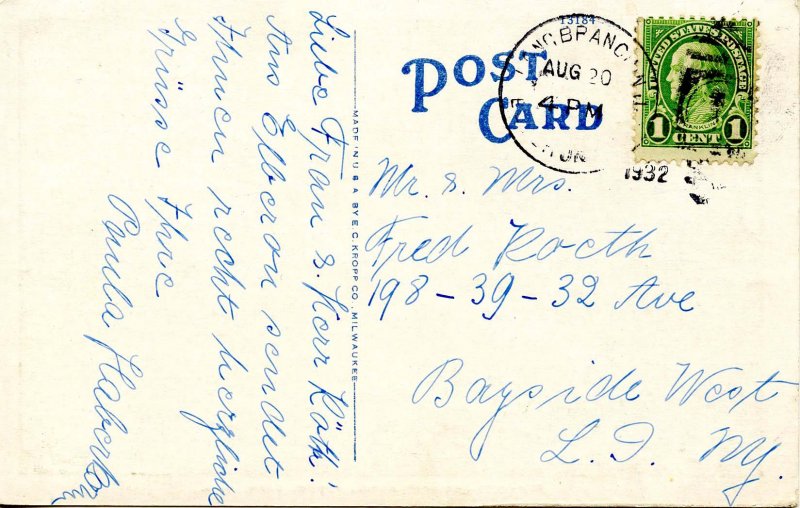 Liebe Frau & Herr Röth!
Aus Elberon sendet
Ihnen recht herzliche
Grüsse Ihre
Paula
MADE IN U.S.A. BY E. C. KROPP CO., MILWAUKEE
13184
POST
CARD
LONG BRANCH N.J.
AUG 20
4 PM
1932
UNITED STATES POSTAGE
FRANKLIN
1 CENT 1
Mr. & Mrs.
Fred Roeth
198-39-32 Ave
Bayside West
L.I. NY.